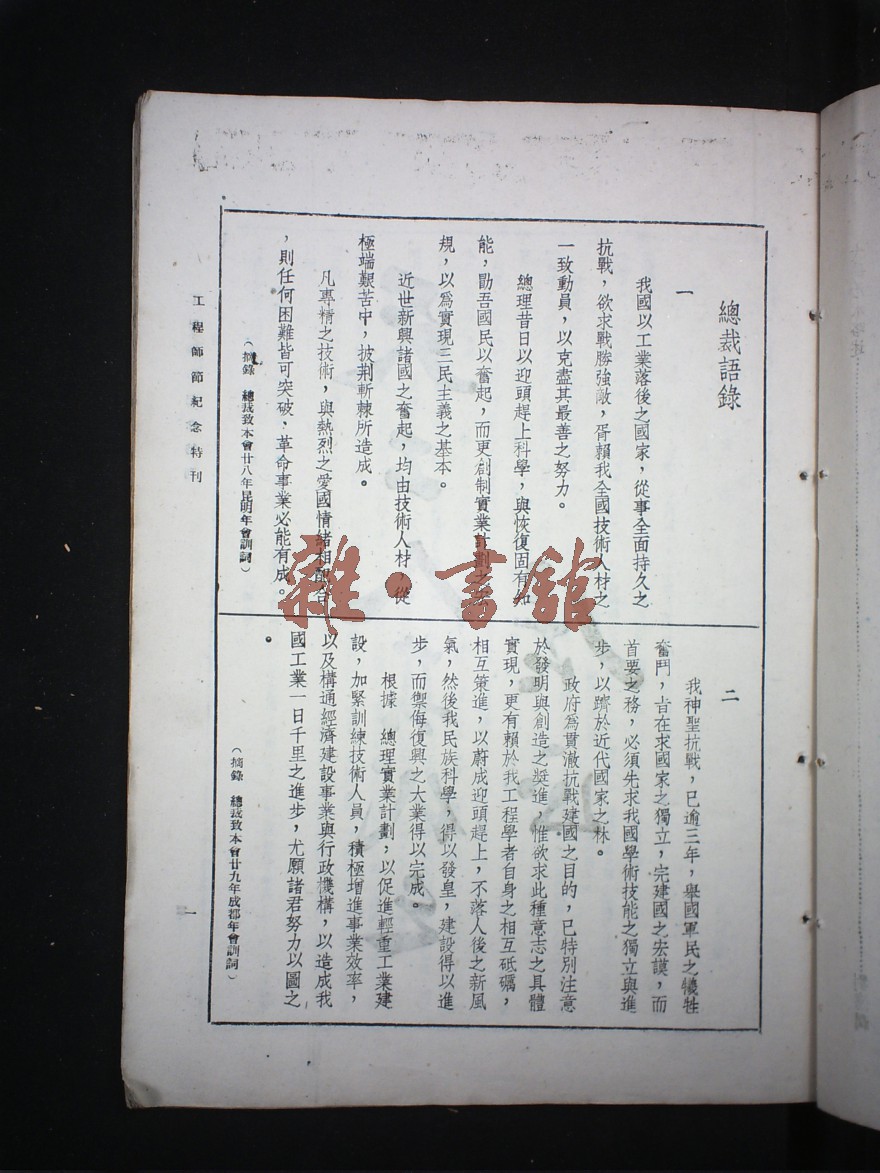 總裁語錄
一
我國以工業落後之國家，從事全面持久之
抗戰，欲求戰勝強敵，胥賴我全國技術人材之
一致動員，以克盡其最善之努力。
總理昔日以迎頭趕上科學，與恢復固有知
能，勖吾國民以奮起，而更創制實業計劃之宏
規，以為實現三民主義之基本。
近世新興諸國之奮起，均由技術人材，從
極端艱苦中，披荆斬棘所造成。
凡專精之技術，與熱烈之愛國情緒相配合
，則任何困難皆可突破，革命事業必能有成。
（摘錄　總裁致本會廿八年昆明年會訓詞）
二
我神聖抗戰，已逾三年，舉國軍民之犧牲
奮鬥，旨在求國家之獨立，完建國之宏謨，而
首要之務，必須先求我國學術技能之獨立與進
步，以躋於近代國家之林。
政府為貫澈抗戰建國之目的，已特別注意
於發明與創造之獎進，惟欲求此種意志之具體
實現，更有賴於我工程學者自身之相互砥礪，
相互策進，以蔚成迎頭趕上，不落人後之新風
氣，然後我民族科學，得以發皇，建設得以進
步，而禦侮復興之大業得以完成。
根據　總理實業計劃，以促進輕重工業建
設，加緊訓練技術人員，積極增進事業效率，
以及構通經濟建設事業與行政機構，以造成我
國工業一日千里之進步，尤願諸君努力以圖之
。
（摘錄　總裁致本會廿九年成都年會訓詞）
工程師節紀念特刊
一
雜·書館